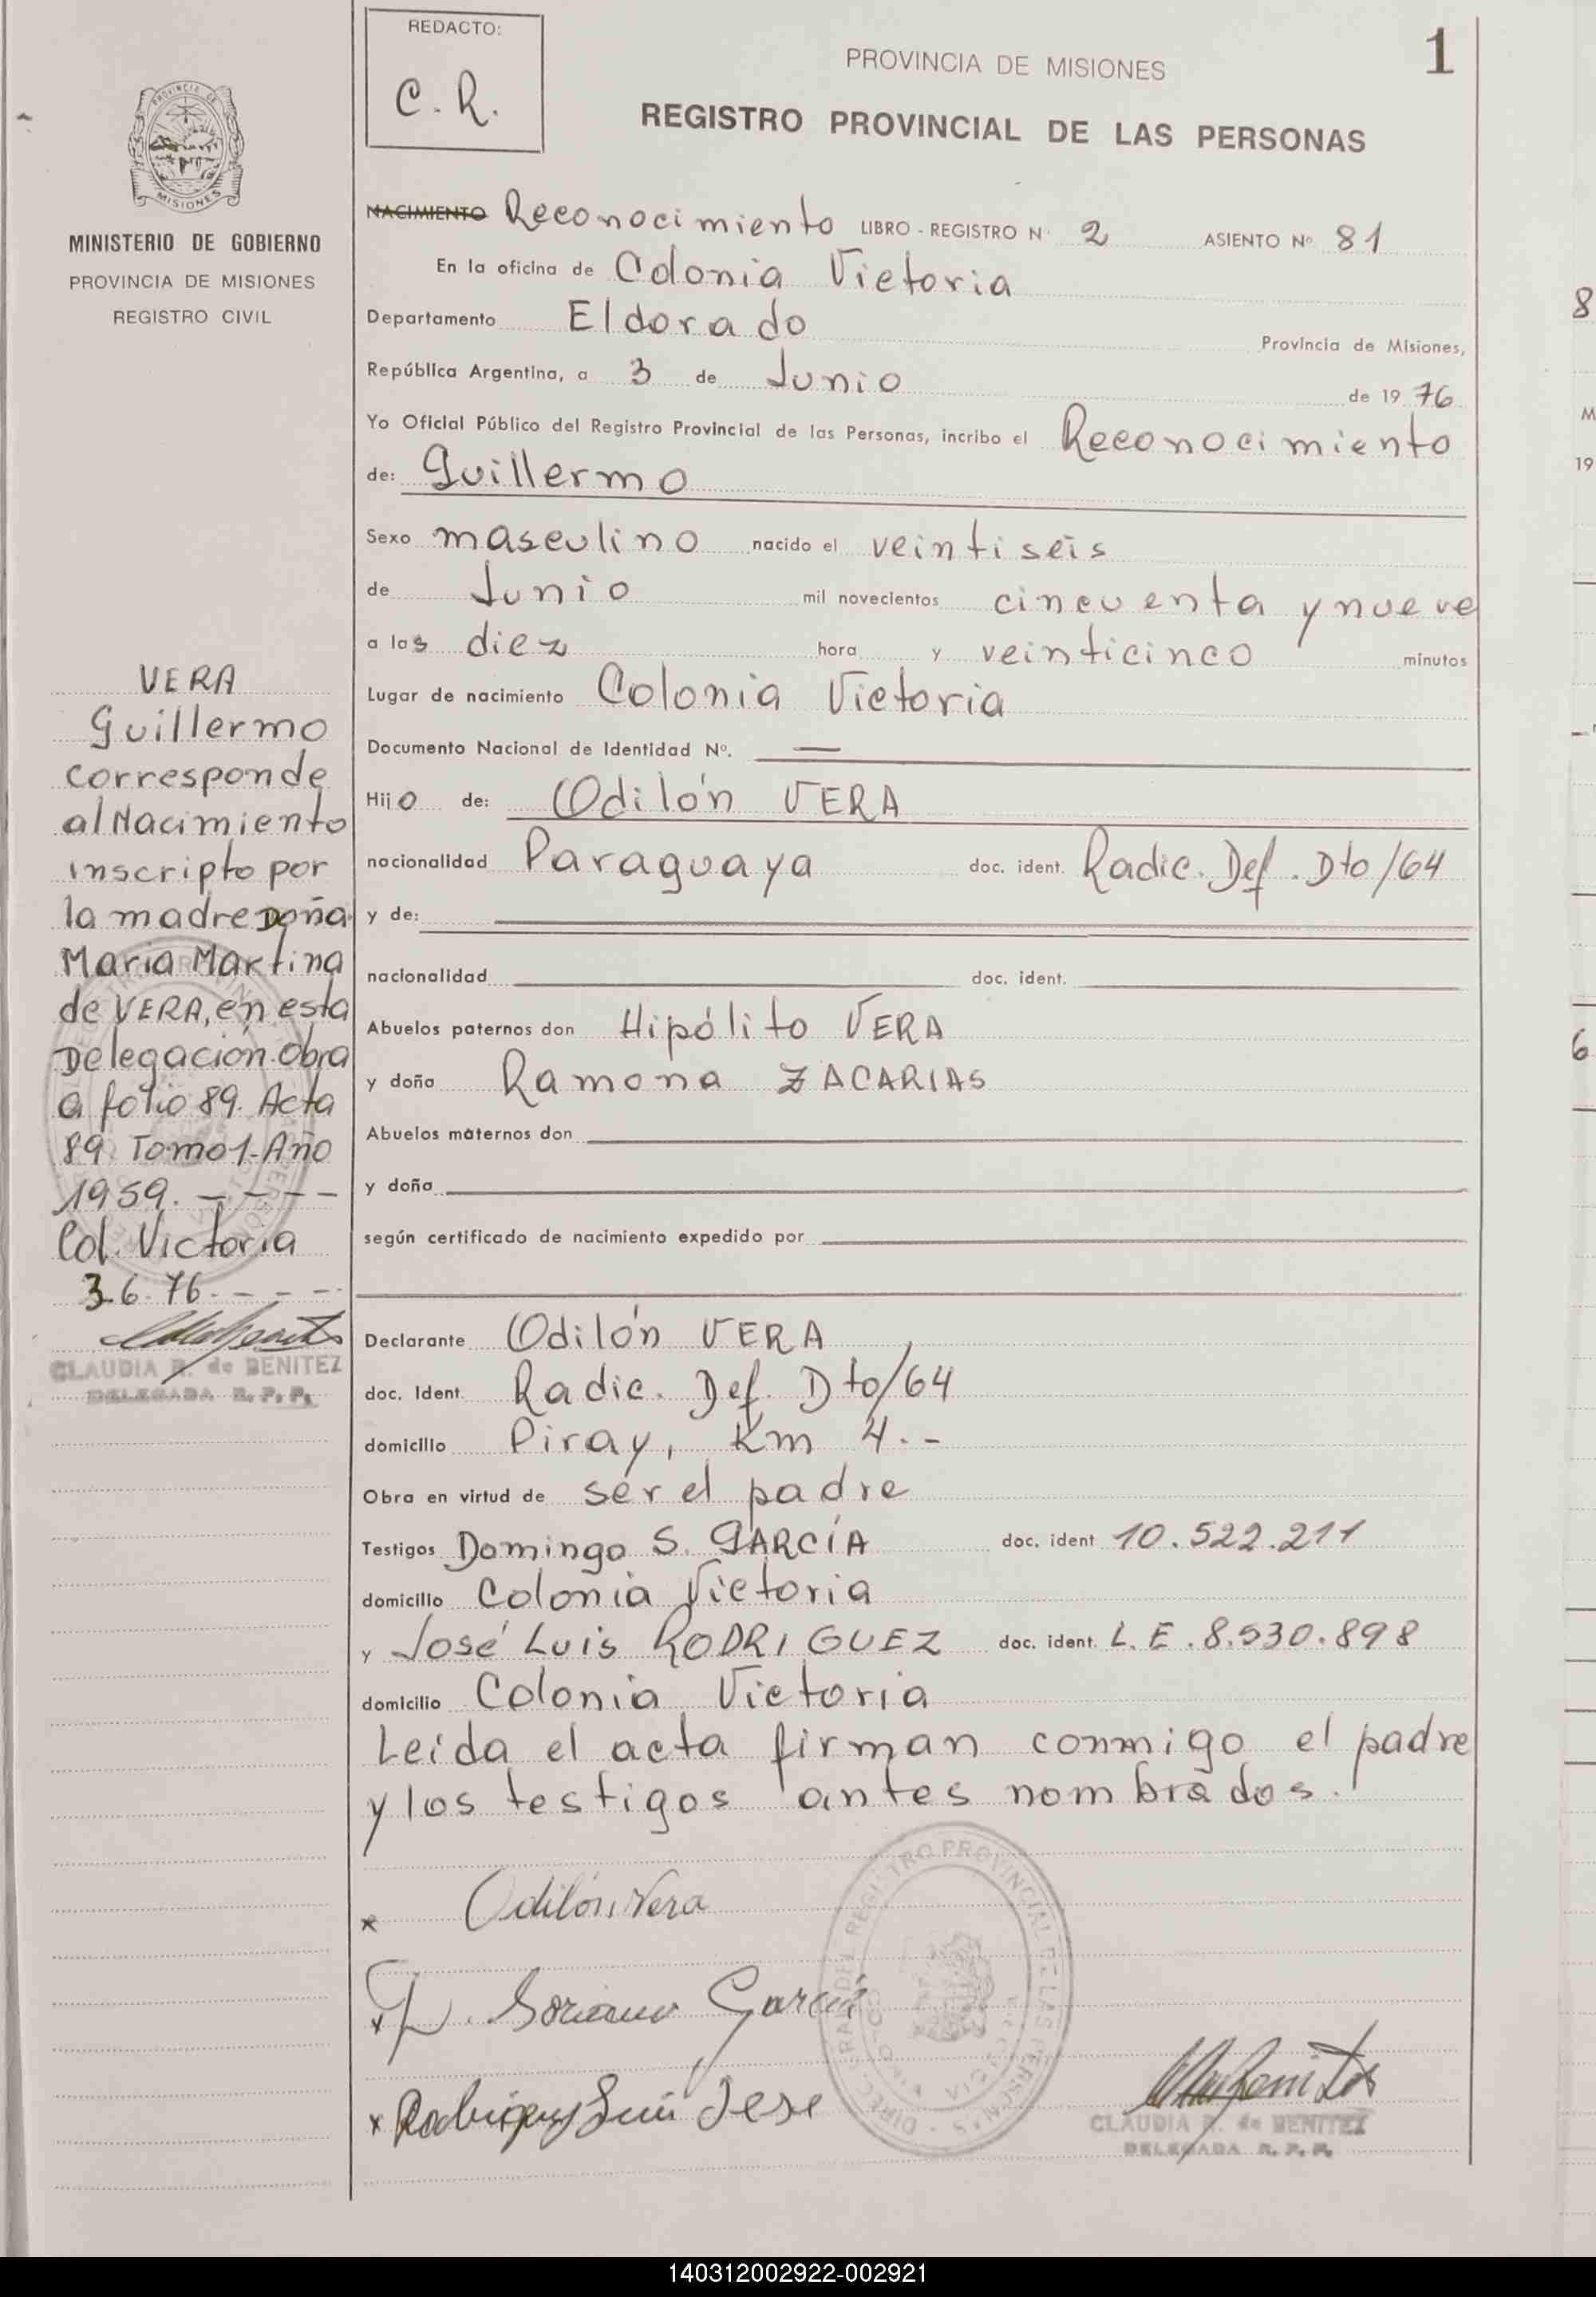 REDACTO:
C. R.
PROVINCIA DE MISIONES
1
REGISTRO PROVINCIAL DE LAS PERSONAS
PROVINCIA DE
MISIONES
MINISTERIO DE GOBIERNO
PROVINCIA DE MISIONES
REGISTRO CIVIL
VERA
Guillermo
corresponde
al Nacimiento
inscripto por
la madre Doña
Maria Martina
de VERA, en esta
Delegación. Obra
a folio 89. Acta
89. Tomo 1. Año
1959. - - - -
Col. Victoria
3.6.76. - - -
CLAUDIA R. de BENITEZ
DELEGADA R. P. P.
NACIMIENTO Reconocimiento LIBRO - REGISTRO Nº 2 ASIENTO Nº 81
En la oficina de Colonia Victoria
Departamento Eldorado Provincia de Misiones,
República Argentina, a 3 de Junio de 1976
Yo Oficial Público del Registro Provincial de las Personas, incribo el Reconocimiento
de: Guillermo
Sexo masculino nacido el veintiseis
de Junio mil novecientos cincuenta y nueve
a las diez hora y veinticinco minutos
Lugar de nacimiento Colonia Victoria
Documento Nacional de Identidad Nº. —
Hijo de: Odilón VERA
nacionalidad Paraguaya doc. ident. Radic. Def. Dto/64
y de:
nacionalidad doc. ident.
Abuelos paternos don Hipólito VERA
y doña Ramona ZACARIAS
Abuelos maternos don
y doña
según certificado de nacimiento expedido por
Declarante Odilón VERA
doc. Ident. Radic. Def. Dto/64
domicilio Piray, Km 4.-
Obra en virtud de ser el padre
Testigos Domingo S. GARCÍA doc. ident 10.522.211
domicilio Colonia Victoria
y José Luis RODRIGUEZ doc. ident. L.E. 8.530.898
domicilio Colonia Victoria
Leída el acta firman conmigo el padre
y los testigos antes nombrados.
x Odilón Vera
x D. Soriano García
x Rodriguez Luis Jose
DIREC. GRAL. DEL REGISTRO PROVINCIAL DE LAS PERSONAS
CLAUDIA R. de BENITEZ
DELEGADA R. P. P.
8
M
19
6
140312002922-002921